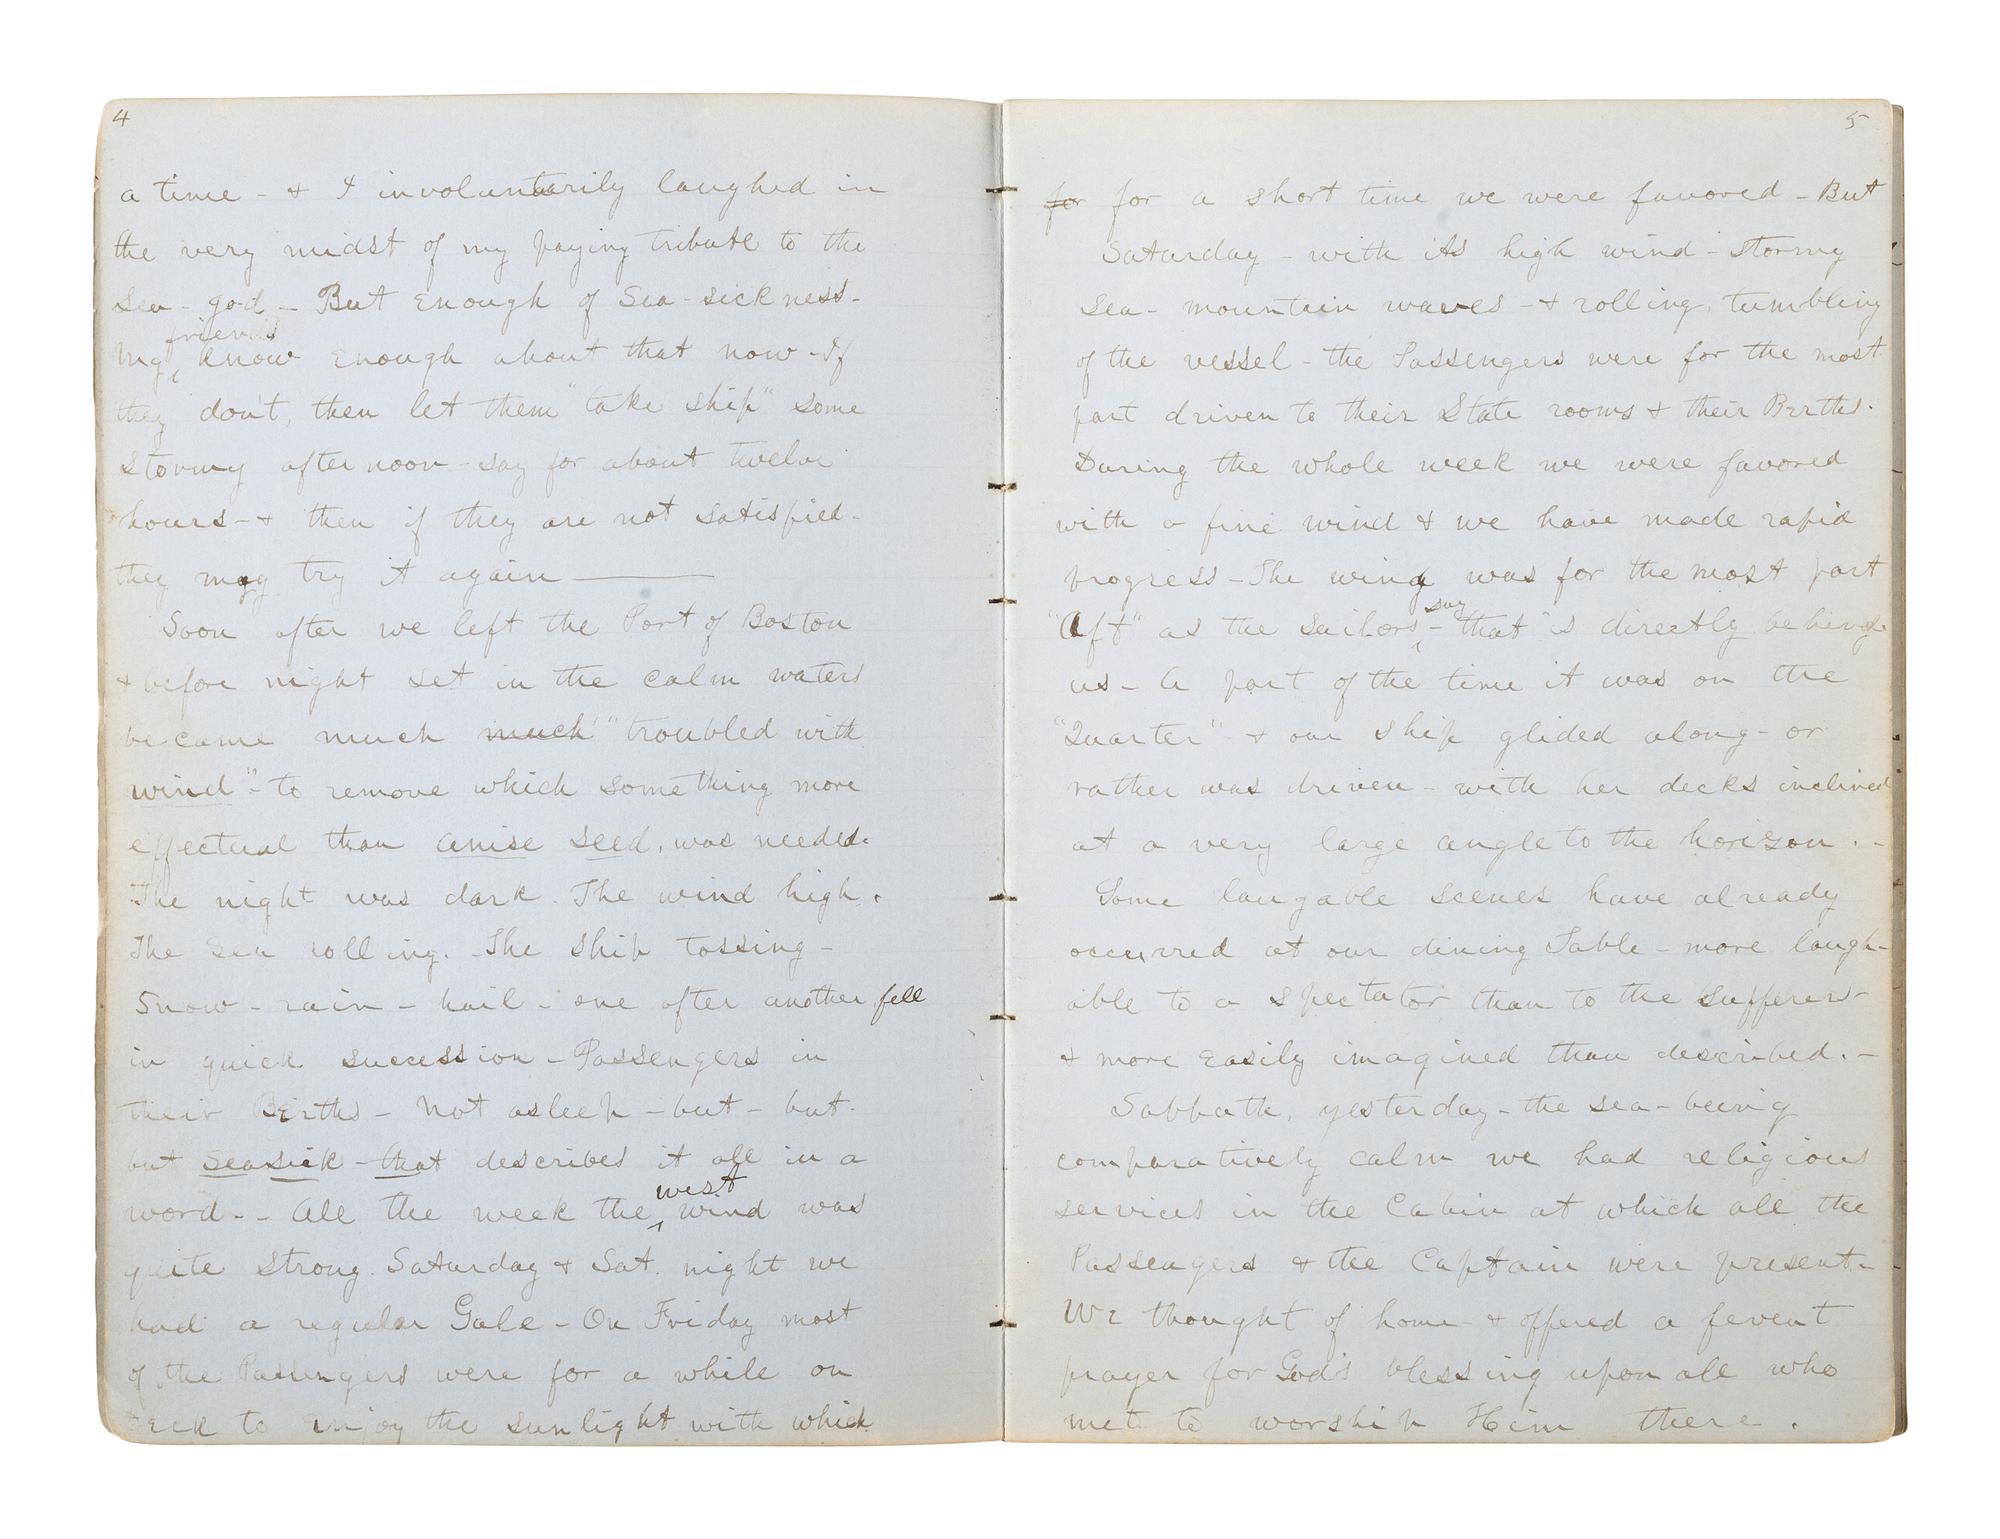 4
a time - & I involuntarily laughed in
the very midst of my paying tribute to the
Sea - god - But Enough of Sea - sickness -
friends
My know Enough about that now - If
they don't, then let them "take ship" some
Stormy afternoon - say for about twelve
hours - & then if they are not satisfied -
they may try it again ———
Soon after we left the Port of Boston
& before night set in the calm waters
became much much "troubled with
wind" - to remove which something more
effectual than anise seed, was needed.
The night was dark. The wind high.
The Sea rolling. - The ship tossing -
Snow - rain - hail - one after another fell
in quick succession - Passengers in
their Births - Not asleep - but - but -
but seasick - that describes it all in a
west
word - - All the week the wind was
quite strong. Saturday & Sat. night we
had a regular Gale - On Friday most
of the Passengers were for a while on
deck to Enjoy the sunlight with which
5
for for a short time we were favored - But
Saturday - with its high wind - stormy
sea - mountain waves - & rolling, tumbling
of the vessel - the Passengers were for the most
part driven to their State rooms & their Births.
During the whole week we were favored
with a fine wind & we have made rapid
progress - The wind was for the most part
say
"Aft" as the sailors - that is directly behind
us - A part of the time it was on the
"Quarter" - & our ship glided along - or
rather was driven - with her decks inclined
at a very large angle to the horizon. -
Some laugable scenes have already
occurred at our dining Table - more laugh-
able to a spectator than to the sufferer -
& more Easily imagined than described. -
Sabbath, yesterday - the sea - being
comparatively calm we had religious
services in the Cabin at which all the
Passengers & the Captain were present -
We thought of home - & offered a fevent
prayer for God's blessing upon all who
met to worship Him there.